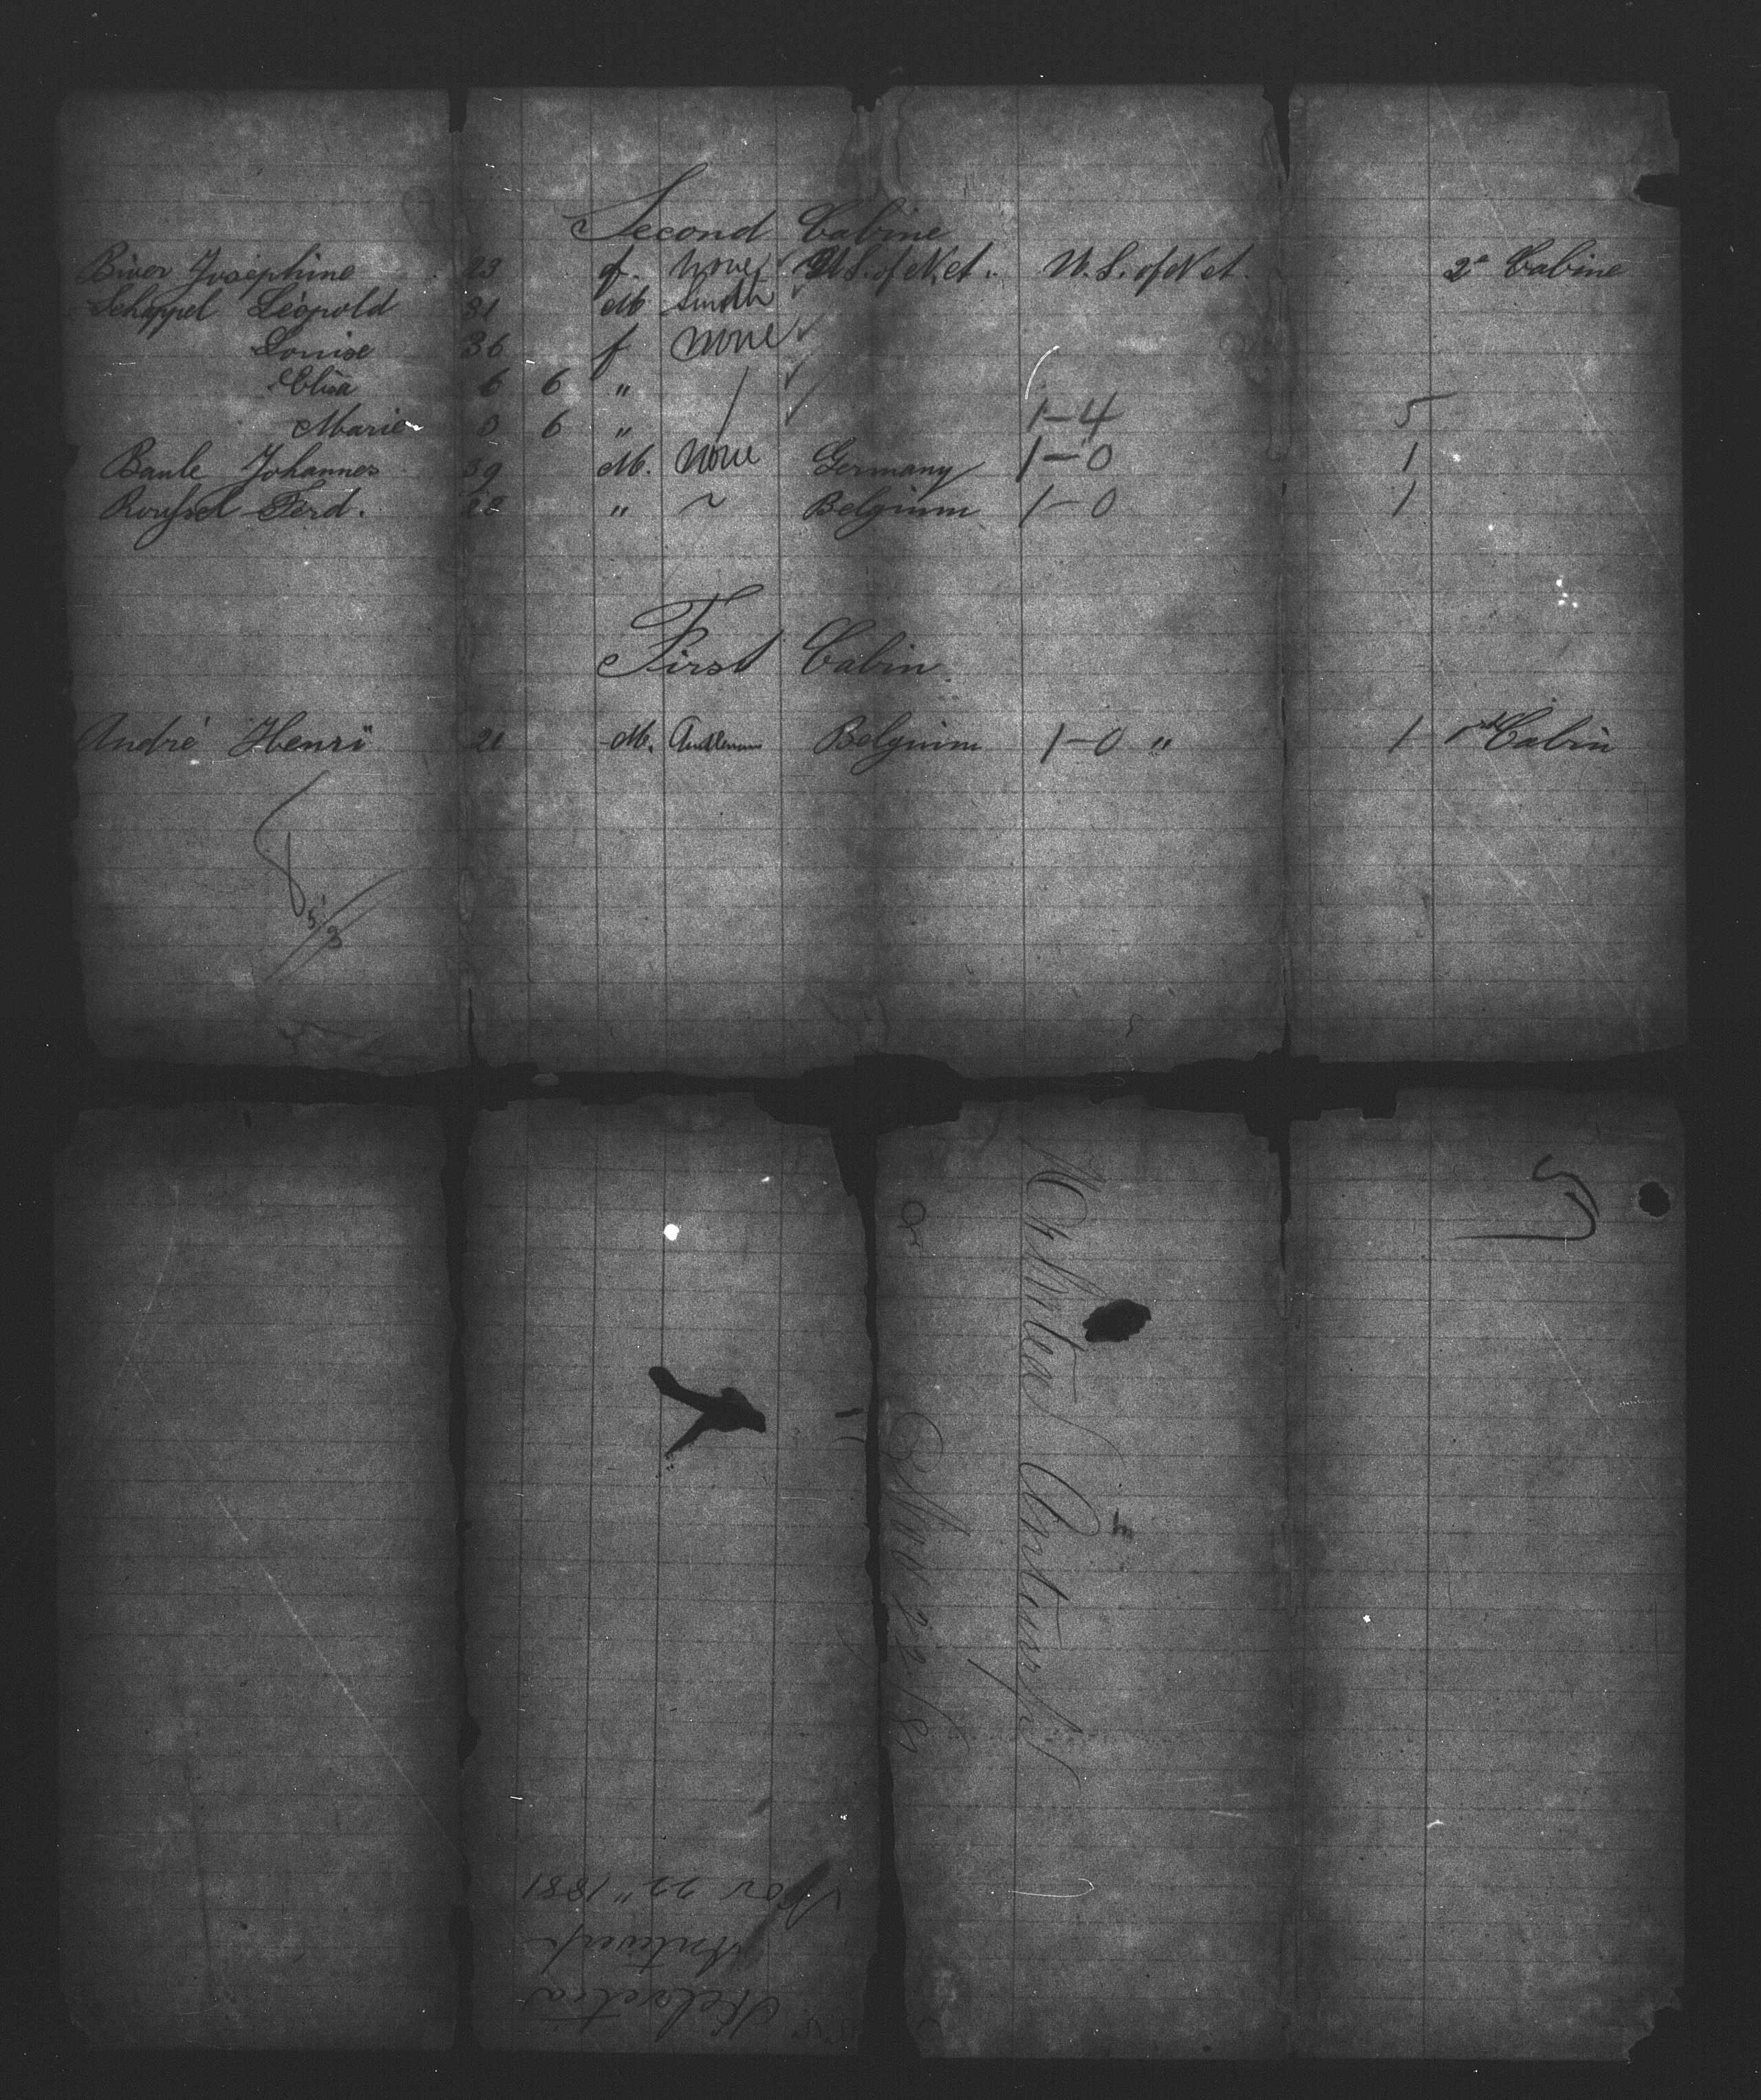 Second Cabine
Biver Josephine 23 f. None U.S. of N.A. U.S. of N.A. 2e Cabine
Schappel Léopold 31 M Smith
Louise 36 f None
Elisa 6 6 "
Marie 0 6 " 1-4 5
Banle Johannes 39 M. None Germany 1-0 1
Roussel Ferd. 28 " ~ Belgium 1-0 1
First Cabin
André Henri 21 M. Belgium 1-0 " 1 1st Cabin
5/3
Helvetia Antwerp
Nov 22 /81
Helvetia
Antwerp
Nov 22" 1881